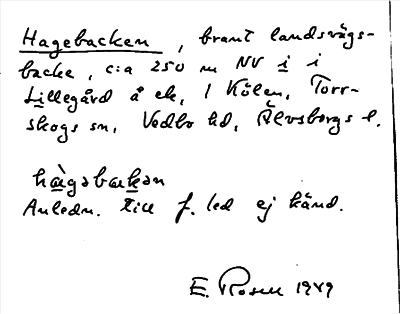 Hagebacken, brant landsvägs-
backe, c:a 250 m NV i i
Lillegård å ek, 1 Kölen, Torr-
skogs sn, Vedbo hd, Älvsborgs l.
hàgabakən
Anledn. till f. led ej känd.
E. Rosell 1949